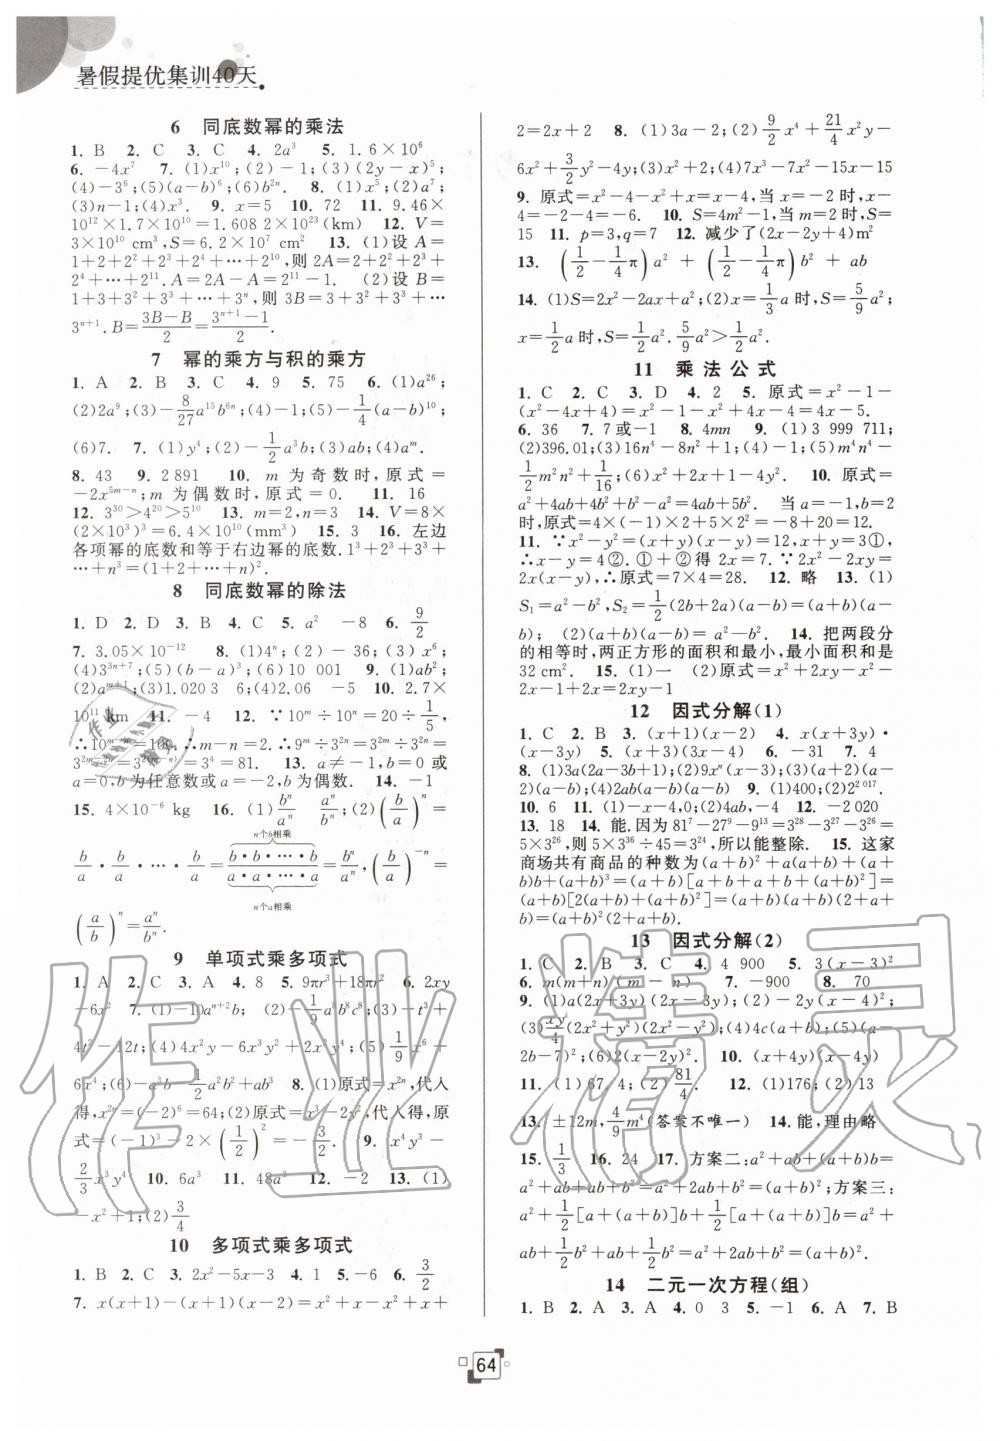 暑假提优集训40天
6 同底数幂的乘法
1. B 2. C 3. C 4. 2a³ 5. 1.6×10⁶
6. −4x⁷ 7. (1)x¹⁰;(2)−1;(3)(2y−x)⁵;
(4)−3⁶;(5)(a−b)⁶;(6)b²ⁿ. 8. (1)x⁵;(2)a⁷;
(3)n−1;(4)x³. 9. x=5 10. 72 11. 9.46×
10¹²×1.7×10¹⁰=1.608 2×10²³(km) 12. V=
3×10¹⁰ cm³,S=6.2×10⁷ cm² 13. (1)设 A=
1+2+2²+2³+2⁴+…+2¹⁰,则 2A=2+2²+2³+
2⁴+…+2¹¹. A=2A−A=2¹¹−1. (2)设 B=
1+3+3²+3³+…+3ⁿ,则 3B=3+3²+3³+…
3ⁿ⁺¹. B=(3B−B)/2=(3ⁿ⁺¹−1)/2
7 幂的乘方与积的乘方
1. A 2. B 3. C 4. 9 5. 75 6. (1)a²⁶;
(2)2a⁹;(3)−8/27 a¹⁵b⁶ⁿ;(4)−1;(5)−1/4(a−b)¹⁰;
(6)7. 7. (1)y⁴;(2)−1/2 a³b;(3)ab;(4)aᵐ.
8. 43 9. 2 891 10. m 为奇数时,原式=
−2x⁵ᵐ⁻ⁿ;m 为偶数时,原式=0. 11. 16
12. 3³⁰>4²⁰>5¹⁰ 13. m=2,n=3 14. V=8×
(2×10³)³=6.4×10¹⁰(mm³) 15. 3 16. 左边
各项幂的底数和等于右边幂的底数. 1³+2³+3³+
…+n³=(1+2+…+n)².
8 同底数幂的除法
1. D 2. D 3. B 4. C 5. a² −8 6. 9/2
7. 3.05×10⁻¹² 8. (1)4ⁿ;(2)−36;(3)x⁶;
(4)3³ⁿ⁺⁷;(5)(b−a)³;(6)10 001 9. (1)ab²;
(2)aᵐ⁺¹;(3)1.020 3 6;(4)2.06 −5 10. 2.7×
10¹¹ km 11. −4 12. ∵10ᵐ÷10ⁿ=20÷1/5,
∴10ᵐ⁻ⁿ=100,∴m−n=2. ∴9ᵐ÷3²ⁿ=3²ᵐ÷
3²ⁿ=3²ᵐ⁻²ⁿ=3²⁽ᵐ⁻ⁿ⁾=3⁴=81. 13. a≠−1,b=0或
a=0,b为任意数或a=−2,b为偶数. 14. −1
15. 4×10⁻⁶ kg 16. (1)bⁿ/aⁿ aⁿ/bⁿ;(2)(b/a)ⁿ=
n个b相乘
b/a·b/a·…·b/a=(b·b·…·b)/(a·a·…·a)=bⁿ/aⁿ,(b/a)⁻ⁿ=
n个a相乘
(a/b)ⁿ=aⁿ/bⁿ.
9 单项式乘多项式
1. A 2. C 3. A 4. 8 5. 9πr³+18πr² 6. 2xy
−6x² 7. (1)−10aⁿ⁺²b; (2)−1/9a⁵b⁶c⁸;(3)−t³+
4t²−12t;(4)4x²y−6x³y²+3xy³;(5)1/9x⁶+
6x⁴;(6)−a³b−1/2a²b²+ab³ 8. (1)原式=x²ⁿ,代入
得,x²ⁿ=(−2)⁶=64;(2)原式=x³−2y²,代入得,原
式=(−1)³−2×(1/2)²=−3/2. 9. x⁴y³−
2/3x³y⁴ 10. 6a³ 11. 48a³ 12. −2 13. (1)
−x²+1;(2)3/4
10 多项式乘多项式
1. B 2. C 3. 2x²−5x−3 4. 1 5. −6 6. 3/2
7. x(x+1)−(x+1)(x−2)=x²+x−x²+x+
2=2x+2 8. (1)3a−2;(2)9/2x⁴+21/4x²y−
6x²+3/2y²−4y;(3)x²+2;(4)7x³−7x²−15x−15
9. 原式=x²−4−x²+x=x−4,当x=−2时,x−
4=−2−4=−6. 10. S=4m²−1,当m=2时,S=
15 11. p=3,q=7 12. 减少了(2x−2y+4)m²
13. (1/2−1/4π)a²+(1/2−1/4π)b²+ab
14. (1)S=2x²−2ax+a²;(2)x=1/3a时,S=5/9a²;
x=1/2a时,S=1/2a². 5/9a²>1/2a².
11 乘法公式
1. C 2. C 3. D 4. 2 5. 原式=x²−1−
(x²−4x+4)=x²−1−x²+4x−4=4x−5.
6. 36 7. 7或−1 8. 4mn 9. (1)3 999 711;
(2)396.01;(3)16n⁴−8n²+1;(4)−1;(5)m⁴n⁴−
1/2m²n²+1/16;(6)x²+2xy+y²−1 10. 原式=
a²+4ab+4b²+b²−a²=4ab+5b². 当a=−1,b=2
时,原式=4×(−1)×2+5×2²=−8+20=12.
11. ∵x²−y²=(x+y)(x−y)=12,x+y=3①,
∴x−y=4②. ①+②得 2x=7. ∵2x²−2xy=
2x(x−y),∴原式=7×4=28. 12. 略 13. (1)
S₁=a²−b²,S₂=1/2(2b+2a)(a−b)=(a+b)(a−
b); (2)(a+b)(a−b)=a²−b². 14. 把两段分
的相等时,两正方形的面积和最小,最小面积和是
32 cm². 15. (1)一 (2)原式=x²+2xy−x²−
2x−1+2x=2xy−1
12 因式分解(1)
1. C 2. B 3. (x+1)(x−2) 4. x(x+3y)·
(x−3y) 5. (x+3)(x−3y) 6. −31 7. 4
8. (1)3a(2a−3b+1);(2)9xⁿ(x−2);(3)(a−
2)(a−b);(4)2ab(a−b)² 9. (1)400;(2)2²⁰¹⁷.
10. 6 11. (1)−x−4,0;(2)4ab,−4 12. −2 020
13. 18 14. 能.因为81⁷−27⁹−9¹³=3²⁸−3²⁷−3²⁶=
5×3²⁶,则5×3²⁶÷45=3²⁴,所以能整除. 15. 这家
商场共有商品的种数为(a+b)²+a(a+b)+(a+
b)b+(a+b)³=(a+b)[a+b+a+b+(a+b)²]=
(a+b)[2(a+b)+(a+b)²]=(a+b)(a+b)(2+a+
b)=(a+b)²(2+a+b).
13 因式分解(2)
1. C 2. B 3. C 4. 4 900 5. a(x−3)²
6. m(m+n)(m−n) 7. −900 8. 70
9. (1)a(2x+3y)(2x−3y);
(3)xy/4(2x²+y²)(2x²−y²);(4)4c(a+b);(5)(a−
2b−7)²;(6)2(x−2y)². 10. (x+y)(x−y)²
11. (1)67.4;(2)81/4 12. (1)176;(2)13
13. ±12m,4/9m⁴(答案不唯一) 14. 能,理由略
15. 1/3 16. 24 17. 方案二:a²+ab+(a+b)b=
a²+ab+ab+b²=a²+2ab+b²=(a+b)²;方案三:
a²+1/2[a+(a+b)]b+1/2[a+(a+b)]b=a²+
ab+1/2b²+ab+1/2b²=a²+2ab+b²=(a+b)².
14 二元一次方程(组)
1. B 2. A 3. A 4. 0 3 5. −1 6. A 7. B
64
作业精灵